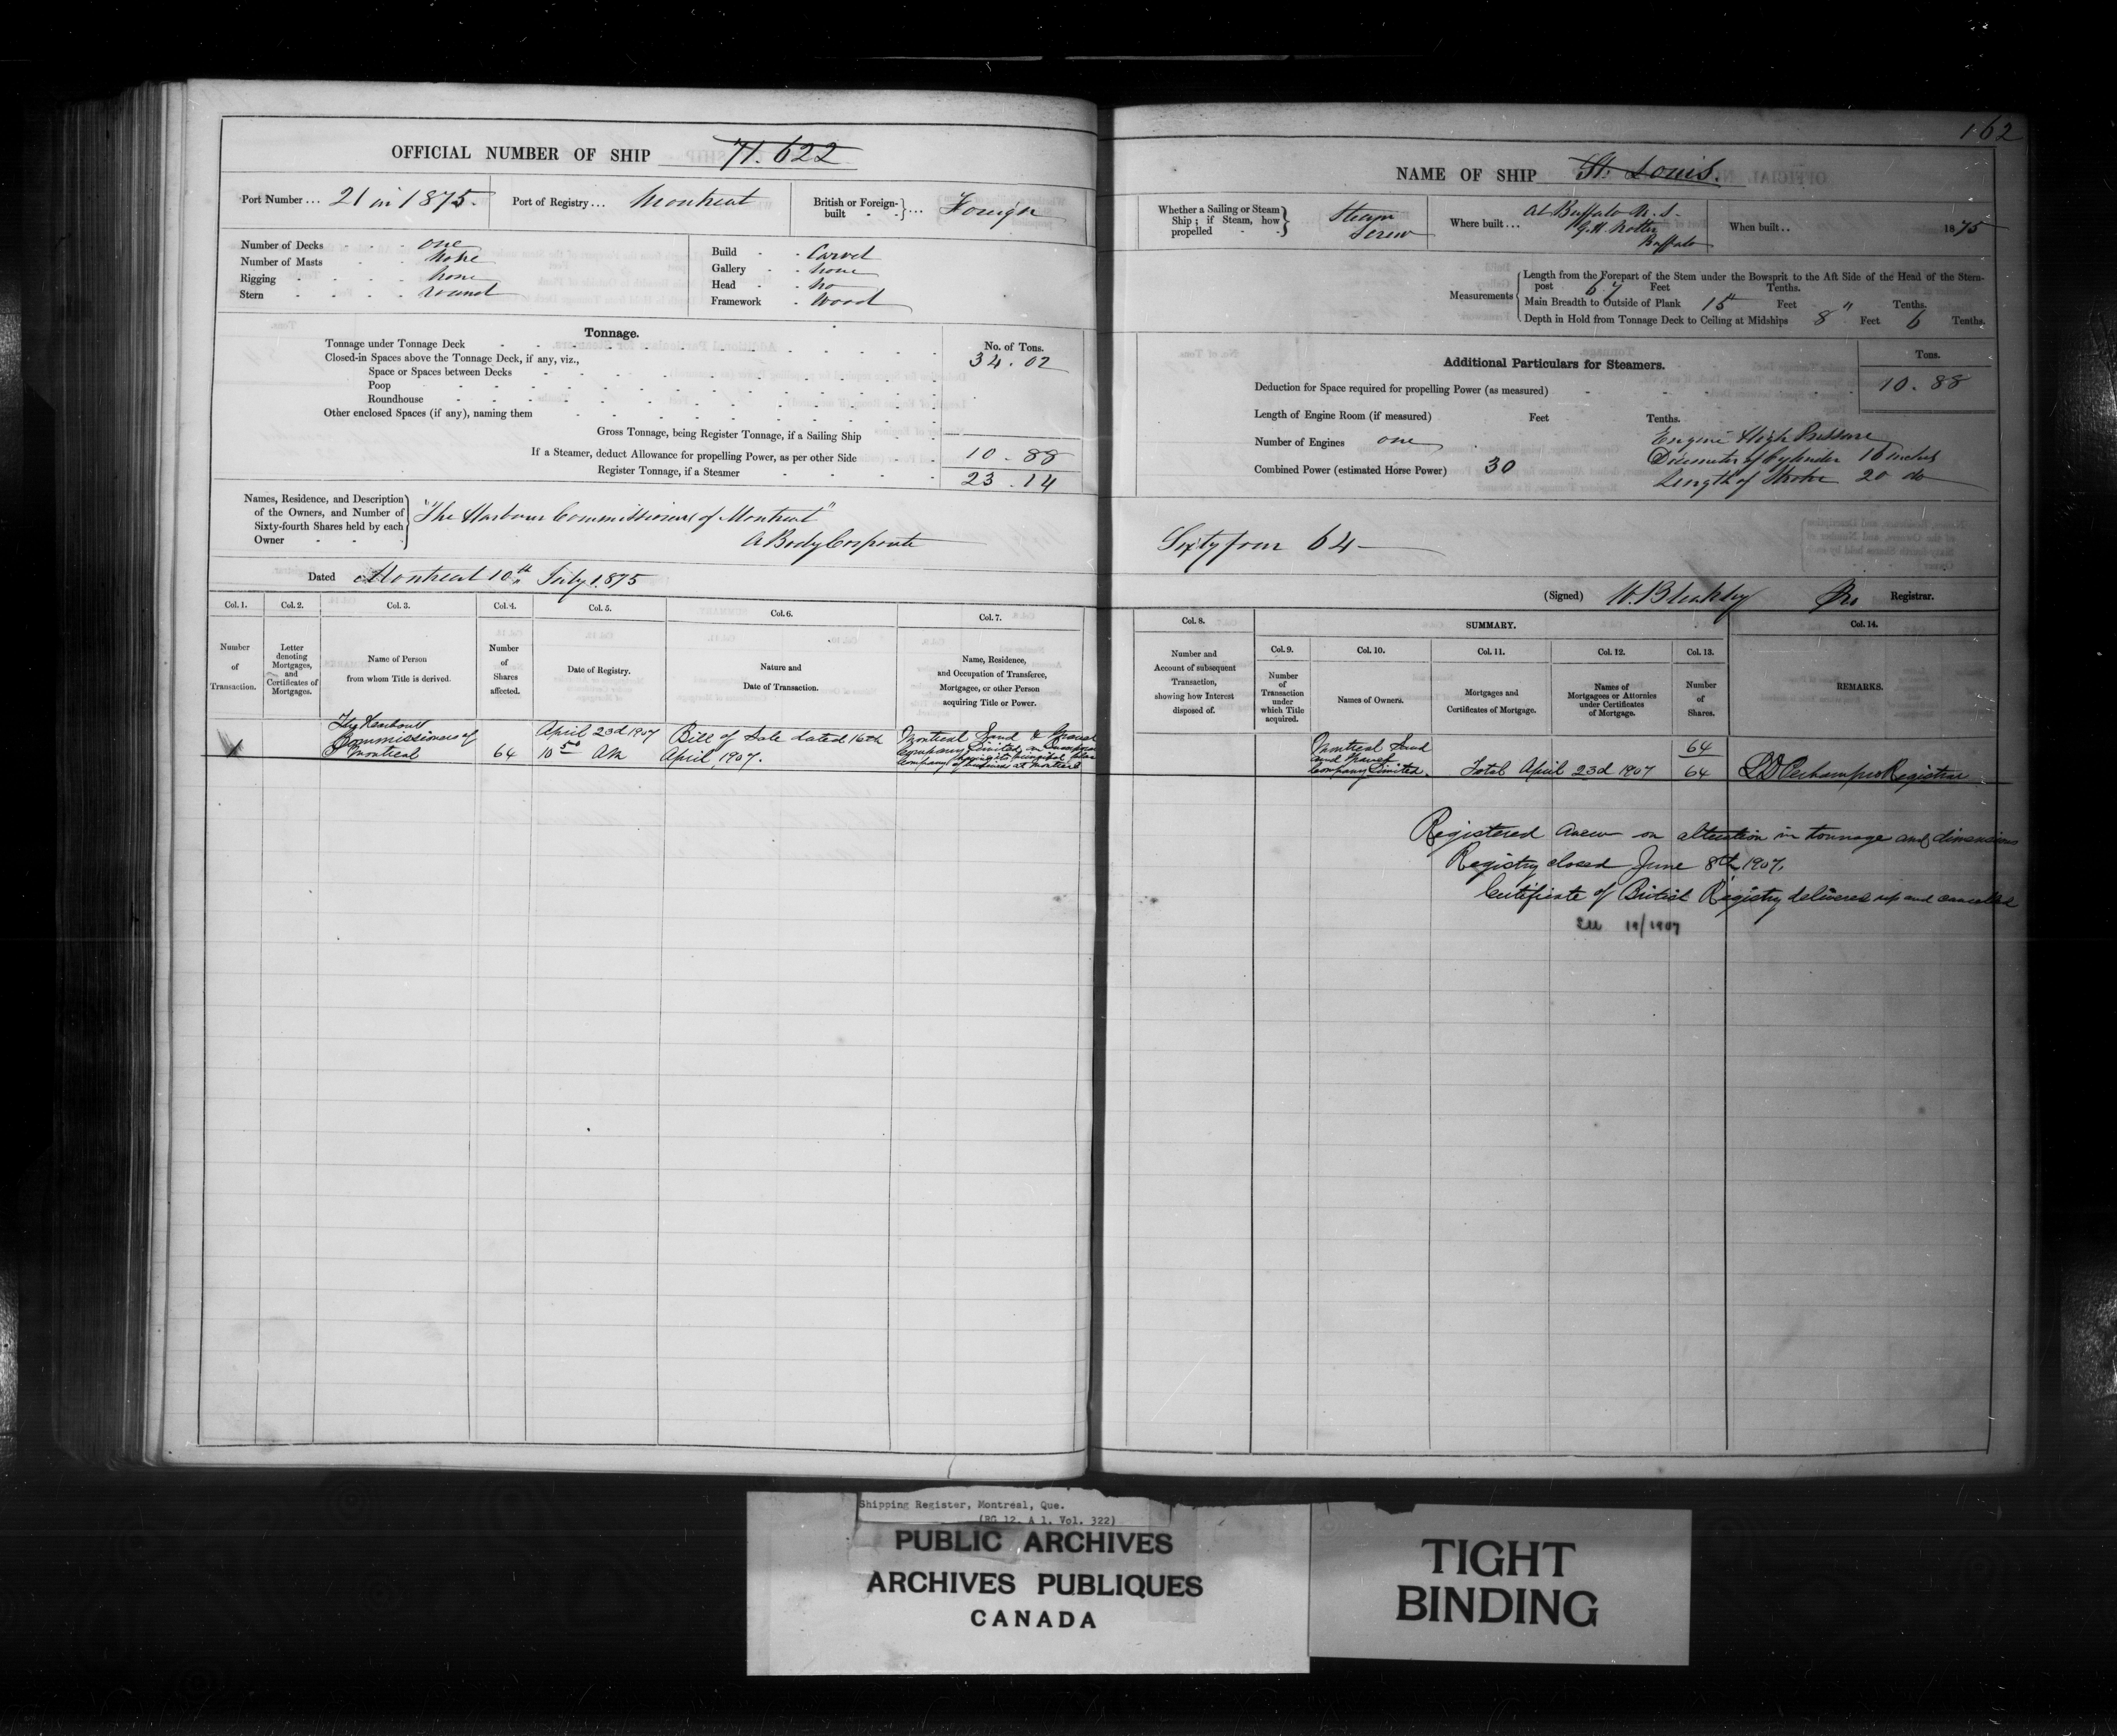 162
OFFICIAL NUMBER OF SHIP 71.622
Port Number ... 21 in 1875.
Port of Registry ... Montreal
British or Foreign-built ... Foreign
Number of Decks one
Number of Masts none
Rigging none
Stern round
Build Carvel
Gallery none
Head no
Framework Wood
Tonnage.
No. of Tons.
Tonnage under Tonnage Deck 34.02
Closed-in Spaces above the Tonnage Deck, if any, viz.,
Space or Spaces between Decks
Poop
Roundhouse
Other enclosed Spaces (if any), naming them
Gross Tonnage, being Register Tonnage, if a Sailing Ship
If a Steamer, deduct Allowance for propelling Power, as per other Side 10.88
Register Tonnage, if a Steamer 23.14
Names, Residence, and Description
of the Owners, and Number of
Sixty-fourth Shares held by each
Owner
"The Harbour Commissioners of Montreal"
A Body Corporate
Dated Montreal 10th July 1875
NAME OF SHIP St. Louis.
Whether a Sailing or Steam
Ship; if Steam, how
propelled
Steam
Screw
Where built ... At Buffalo U.S.
Buffalo
When built .. 1875
Measurements
Length from the Forepart of the Stem under the Bowsprit to the Aft Side of the Head of the Stern-
post 67 Feet Tenths.
Main Breadth to Outside of Plank 15 Feet Tenths.
Depth in Hold from Tonnage Deck to Ceiling at Midships 8 Feet 6 Tenths.
Additional Particulars for Steamers.
Tons.
Deduction for Space required for propelling Power (as measured) 10.88
Length of Engine Room (if measured) Feet Tenths.
Number of Engines one
Combined Power (estimated Horse Power) 30
Engine High Pressure
Diameter of Cylinder 16 inches
Length of Stroke 20 do
Sixty four 64
(Signed) Registrar.
Col. 1. Col. 2. Col. 3. Col. 4. Col. 5. Col. 6. Col. 7.
Number
of
Transaction.
Letter
denoting
Mortgages,
and
Certificates of
Mortgages.
Name of Person
from whom Title is derived.
Number
of
Shares
affected.
Date of Registry.
Nature and
Date of Transaction.
Name, Residence,
and Occupation of Transferee,
Mortgagee, or other Person
acquiring Title or Power.
Col. 8.
Number and
Account of subsequent
Transaction,
showing how Interest
disposed of.
SUMMARY.
Col. 9. Col. 10. Col. 11. Col. 12. Col. 13.
Number
of
Transaction
under
which Title
acquired.
Names of Owners.
Mortgages and
Certificates of Mortgage.
Names of
Mortgagees or Attornies
under Certificates
of Mortgage.
Number
of
Shares.
Col. 14.
REMARKS.
1
The Harbour
Commissioners of
Montreal
64
April 23d 1907
10 50 AM
Bill of Sale dated 16th
April, 1907.
Montreal Sand & Gravel
Company Limited,
Company having its principal place
of business at Montreal
Montreal Sand
and Gravel
Company Limited.
Total April 23d 1907
64
64
Registrar
Registered Anew on alteration in tonnage and dimensions
Registry closed June 8th, 1907.
Certificate of British Registry delivered up and cancelled
See 19/1907
Shipping Register, Montréal, Que.
(RG 12, A 1, Vol. 322)
PUBLIC ARCHIVES
ARCHIVES PUBLIQUES
CANADA
TIGHT
BINDING